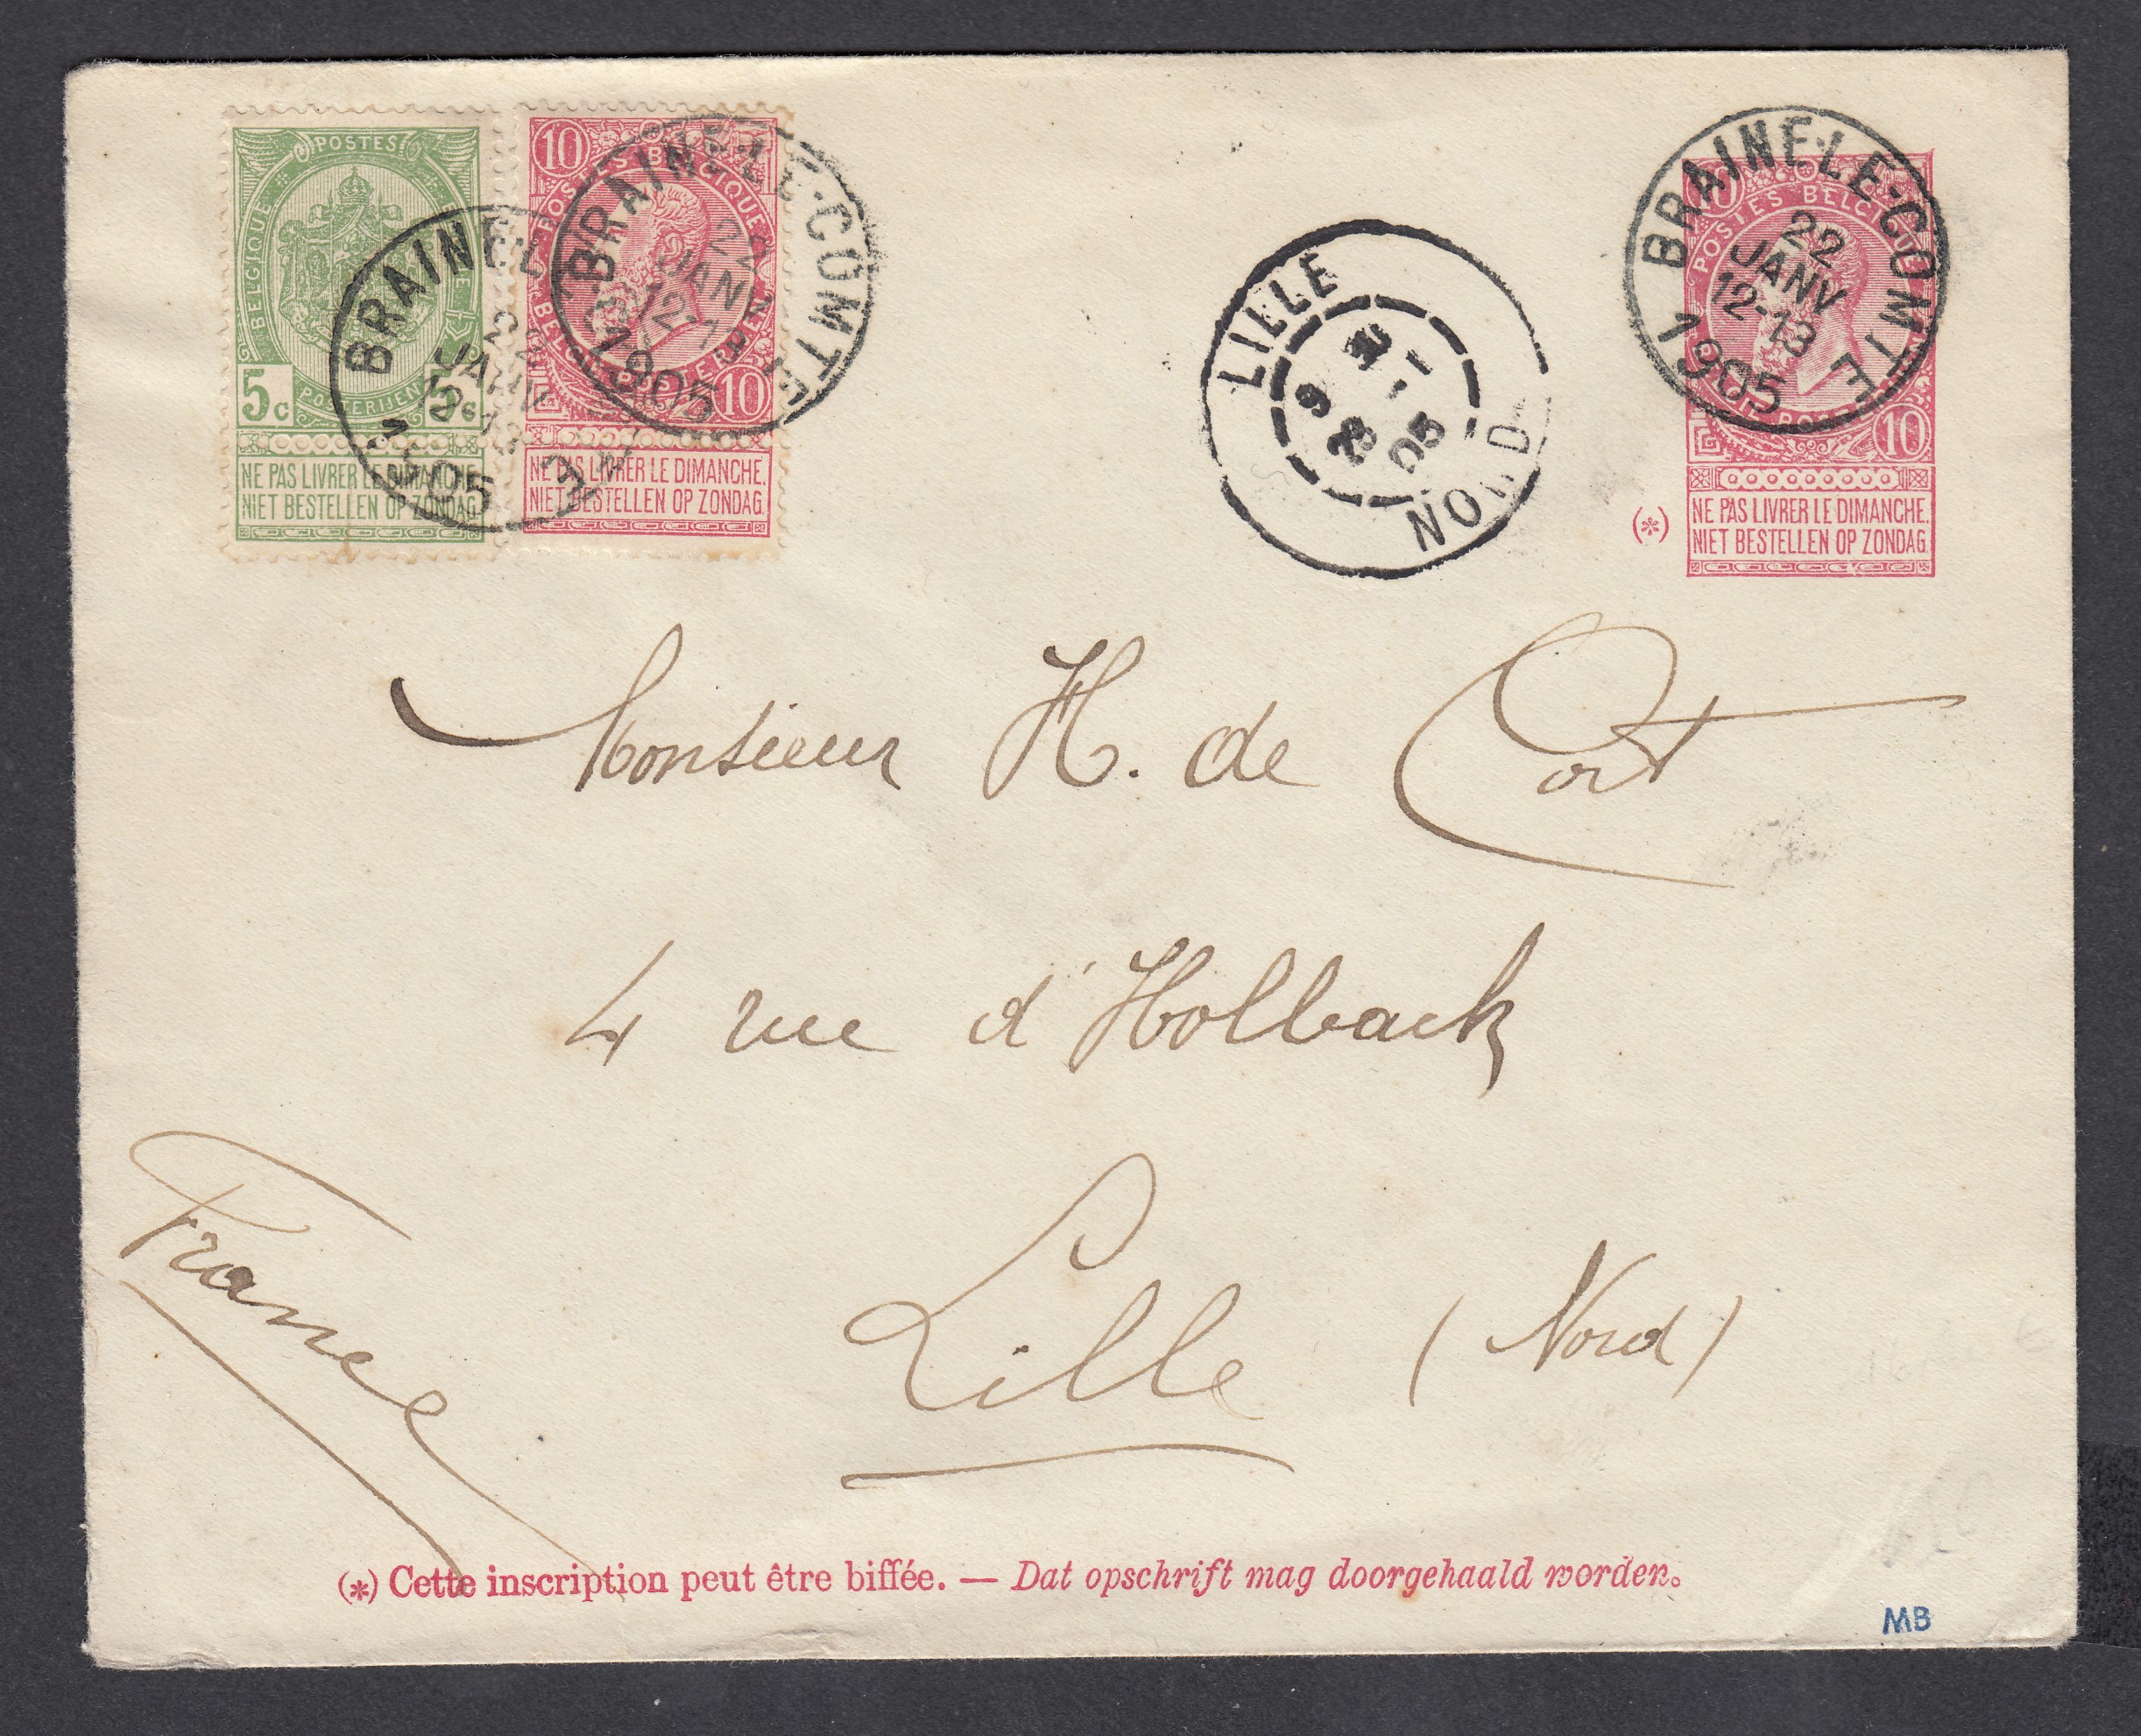 POSTES
BELGIQUE
5c POSTERIJEN 5c
NE PAS LIVRER LE DIMANCHE.
NIET BESTELLEN OP ZONDAG.
10
POSTES BELGIQUE
10
NE PAS LIVRER LE DIMANCHE.
NIET BESTELLEN OP ZONDAG.
BRAINE-LE-COMTE
22
JANV
1905
LILLE
9
23 05
NORD
BRAINE-LE-COMTE
22
JANV
12-13
1905
10
POSTES BELGIQUE
10
(*) NE PAS LIVRER LE DIMANCHE.
NIET BESTELLEN OP ZONDAG.
Monsieur H. de Cort
4 rue d'Holback
France
Lille (Nord)
(*) Cette inscription peut être biffée. — Dat opschrift mag doorgehaald worden.
MB